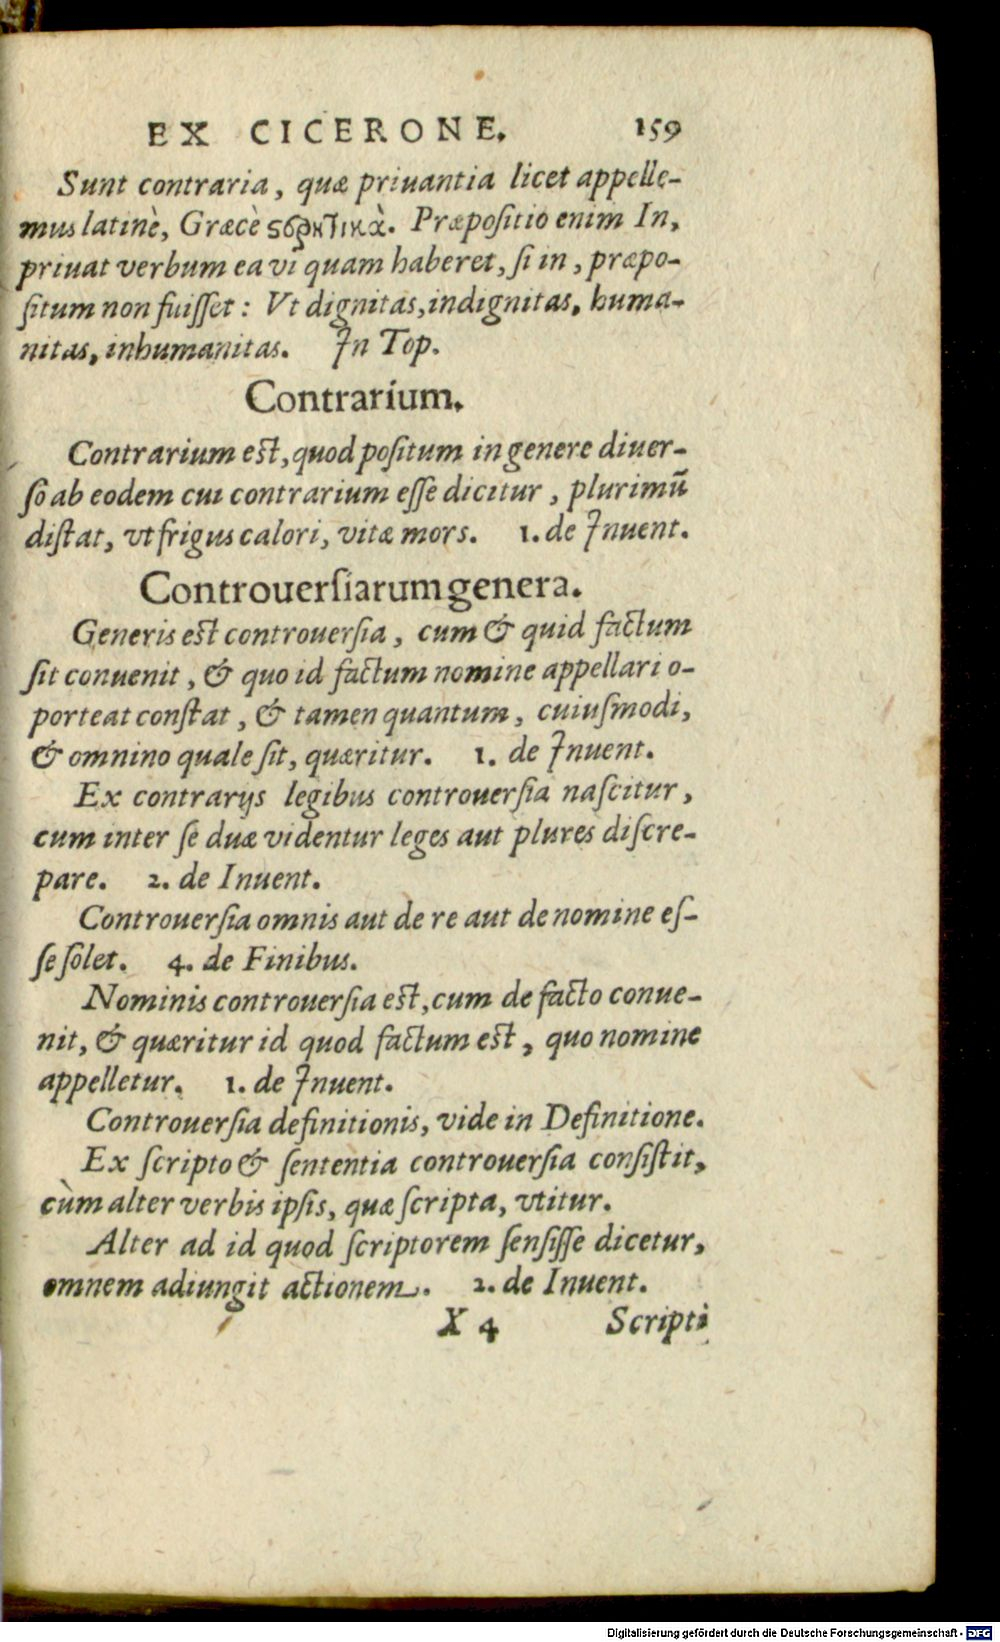 EX CICERONE. 159
Sunt contraria, quæ priuantia licet appelle-
mus latinè, Græcè ϛορητικὰ. Præpoſitio enim In,
priuat verbum ea vi quam haberet, ſi in, præpo-
ſitum non fuiſſet: Vt dignitas, indignitas, huma-
nitas, inhumanitas. In Top.
Contrarium.
Contrarium eſt, quod poſitum in genere diuer-
ſo ab eodem cui contrarium eſſe dicitur, plurimū
diſtat, vt frigus calori, vitæ mors. 1. de Inuent.
Controuerſiarum genera.
Generis eſt controuerſia, cum & quid factum
ſit conuenit, & quo id factum nomine appellari o-
porteat conſtat, & tamen quantum, cuiuſmodi,
& omnino quale ſit, quæritur. 1. de Inuent.
Ex contrarijs legibus controuerſia naſcitur,
cum inter ſe duæ videntur leges aut plures diſcre-
pare. 2. de Inuent.
Controuerſia omnis aut de re aut de nomine eſ-
ſe ſolet. 4. de Finibus.
Nominis controuerſia eſt, cum de facto conue-
nit, & quæritur id quod factum eſt, quo nomine
appelletur. 1. de Inuent.
Controuerſia definitionis, vide in Definitione.
Ex ſcripto & ſententia controuerſia conſiſtit,
cùm alter verbis ipſis, quæ ſcripta, vtitur.
Alter ad id quod ſcriptorem ſenſiſſe dicetur,
omnem adiungit actionem. 2. de Inuent.
X 4 Scripti
Digitalisierung gefördert durch die Deutsche Forschungsgemeinschaft - DFG